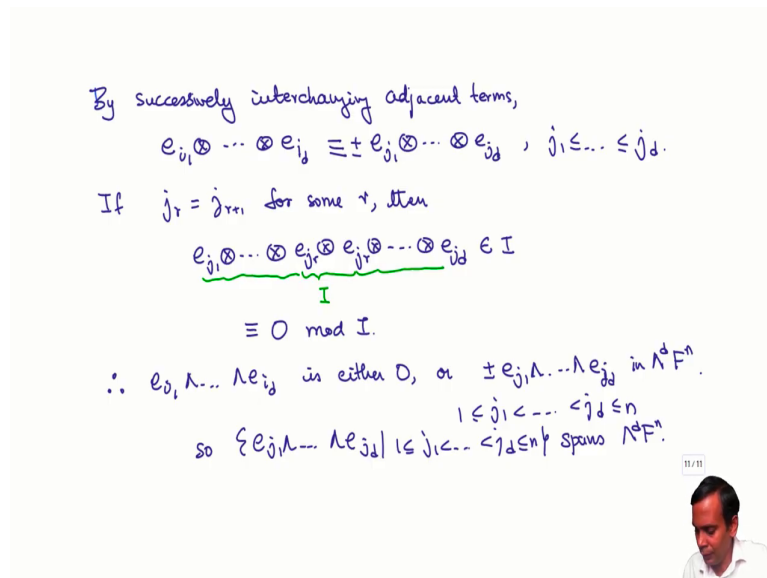 By successively interchanging adjacent terms,
e_{i_1} ⊗ ··· ⊗ e_{i_d} ≡ ± e_{j_1} ⊗ ··· ⊗ e_{j_d} , j_1 ≤ ... ≤ j_d.
If j_r = j_{r+1} for some r, then
e_{j_1} ⊗ ··· ⊗ e_{j_r} ⊗ e_{j_r} ⊗ ··· ⊗ e_{j_d} ∈ I
I
≡ 0 mod I.
∴ e_{i_1} ∧ ... ∧ e_{i_d} is either 0, or ± e_{j_1} ∧ ... ∧ e_{j_d} in Λ^d F^n.
1 ≤ j_1 < ... < j_d ≤ n
so {e_{j_1} ∧ ... ∧ e_{j_d} | 1 ≤ j_1 < ... < j_d ≤ n} spans Λ^d F^n.
11 / 11